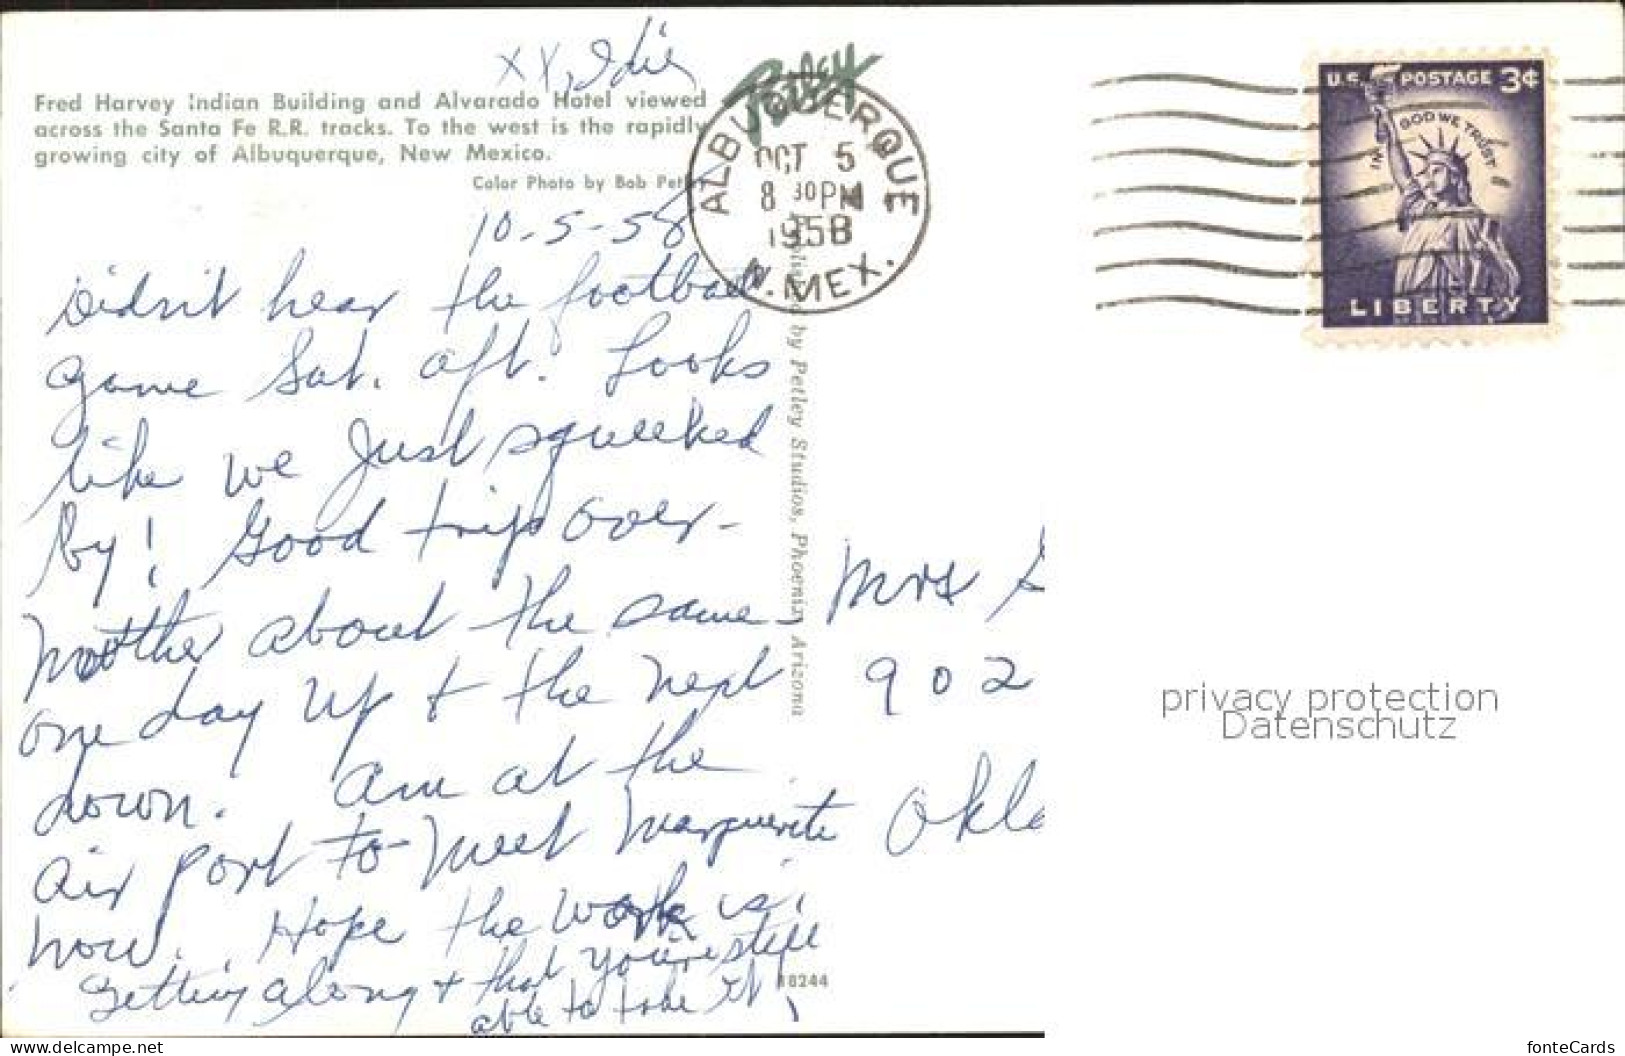 XX, Idie
Fred Harvey Indian Building and Alvarado Hotel viewed
across the Santa Fe R.R. tracks. To the west is the rapidly
growing city of Albuquerque, New Mexico.
Color Photo by Bob Petley
10-5-58
Didn't hear the football
game Sat. aft. Looks
like we just squeeked
by! Good trip over-
Mother about the same,
one day up + the next
down. Am at the
air port to meet Marguerite
now. Hope the work is
getting along + that you're still
able to take it,
Petley
ALBUQUERQUE
OCT 5
8 30 PM
1958
N. MEX.
by Petley Studios, Phoenix, Arizona
18244
U.S. POSTAGE 3¢
IN GOD WE TRUST
LIBERTY
Mrs
902
Okla
privacy protection
Datenschutz
www.delcampe.net
fonteCards